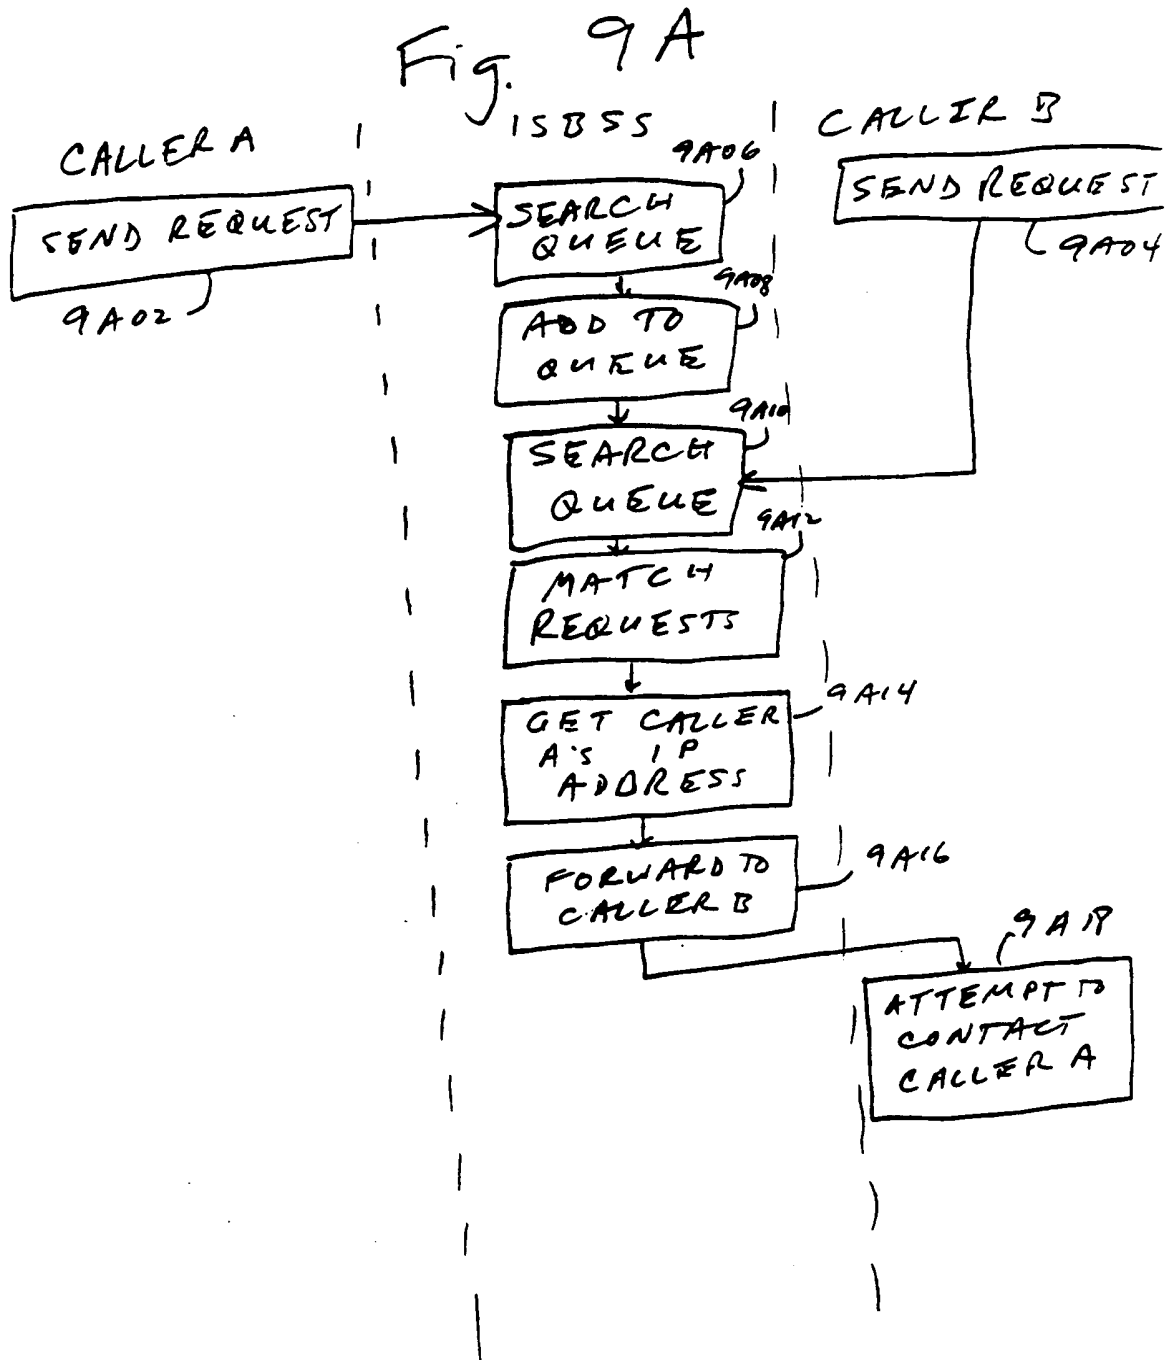 Fig. 9A
CALLER A
ISBSS
CALLER B
SEND REQUEST
9A02
SEND REQUEST
9A04
9A06
SEARCH
QUEUE
9A08
ADD TO
QUEUE
9A10
SEARCH
QUEUE
9A12
MATCH
REQUESTS
GET CALLER
A's IP
ADDRESS
9A14
FORWARD TO
CALLER B
9A16
9A18
ATTEMPT TO
CONTACT
CALLER A